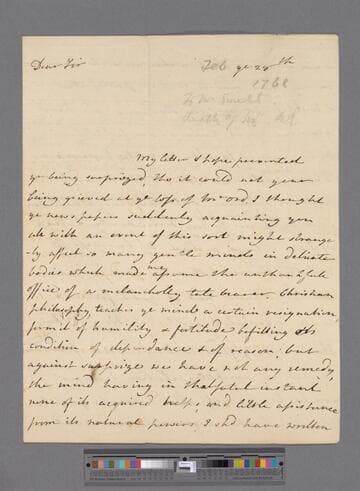 Dear Sir
Feb ye 28th
1768
To Mr
Death of Mr Ord
My letter I hope prevented
yr being surprized, tho it could not your
being grieved at ye loss of Mr Ord, I thought
ye news papers suddenly acquainting you
all with an event of this sort might strange
-ly affect so many gentle minds in delicate
bodies which made me assume the unthankfull
office of a melancholey tale bearer. Christian
philosophy teaches ye minds a certain resignation,
permit of humility & fortitude, befitting its
condition of dependance & of reason, but
against surprizes we have not any remedy,
the mind having in that fatal instant
none of its acquired helps, and little assistance
from its natural powers. I shd have written